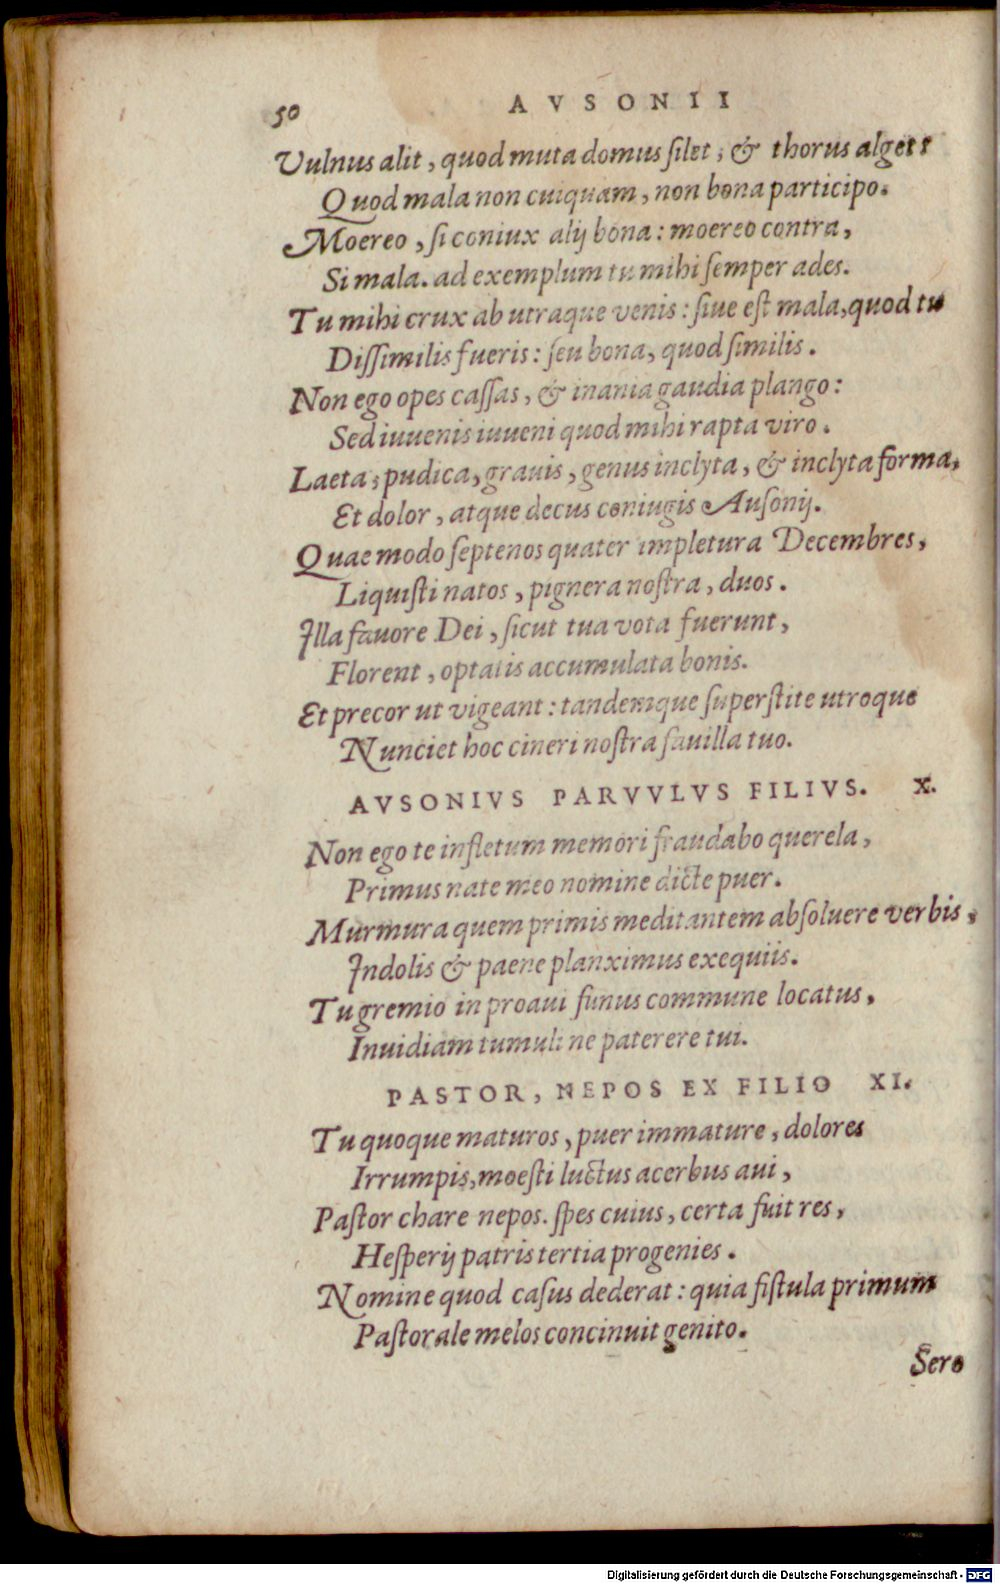 50 AVSONII
Vulnus alit, quod muta domus ſilet, & thorus alget:
Quod mala non cuiquam, non bona participo.
Moereo, ſi coniux alij bona: moereo contra,
Si mala. ad exemplum tu mihi ſemper ades.
Tu mihi crux ab utraque venis: ſiue eſt mala, quod tu
Diſſimilis fueris: ſeu bona, quod ſimilis.
Non ego opes caſſas, & inania gaudia plango:
Sed iuuenis iuueni quod mihi rapta viro.
Laeta, pudica, grauis, genus inclyta, & inclyta forma,
Et dolor, atque decus coniugis Auſonij.
Quae modo ſeptenos quater impletura Decembres,
Liquiſti natos, pignera noſtra, duos.
Illa fauore Dei, ſicut tua vota fuerunt,
Florent, optatis accumulata bonis.
Et precor ut vigeant: tandemque ſuperſtite utroque
Nunciet hoc cineri noſtra fauilla tuo.
AVSONIVS PARVVLVS FILIVS. X.
Non ego te infletum memori fraudabo querela,
Primus nate meo nomine dicte puer.
Murmura quem primis meditantem abſoluere verbis,
Indolis & paene planximus exequiis.
Tu gremio in proaui funus commune locatus,
Inuidiam tumuli ne paterere tui.
PASTOR, NEPOS EX FILIO XI.
Tu quoque maturos, puer immature, dolores
Irrumpis, moeſti luctus acerbus aui,
Paſtor chare nepos. ſpes cuius, certa fuit res,
Heſperij patris tertia progenies.
Nomine quod caſus dederat: quia fiſtula primum
Paſtorale melos concinuit genito.
Sero
Digitalisierung gefördert durch die Deutsche Forschungsgemeinschaft - DFG